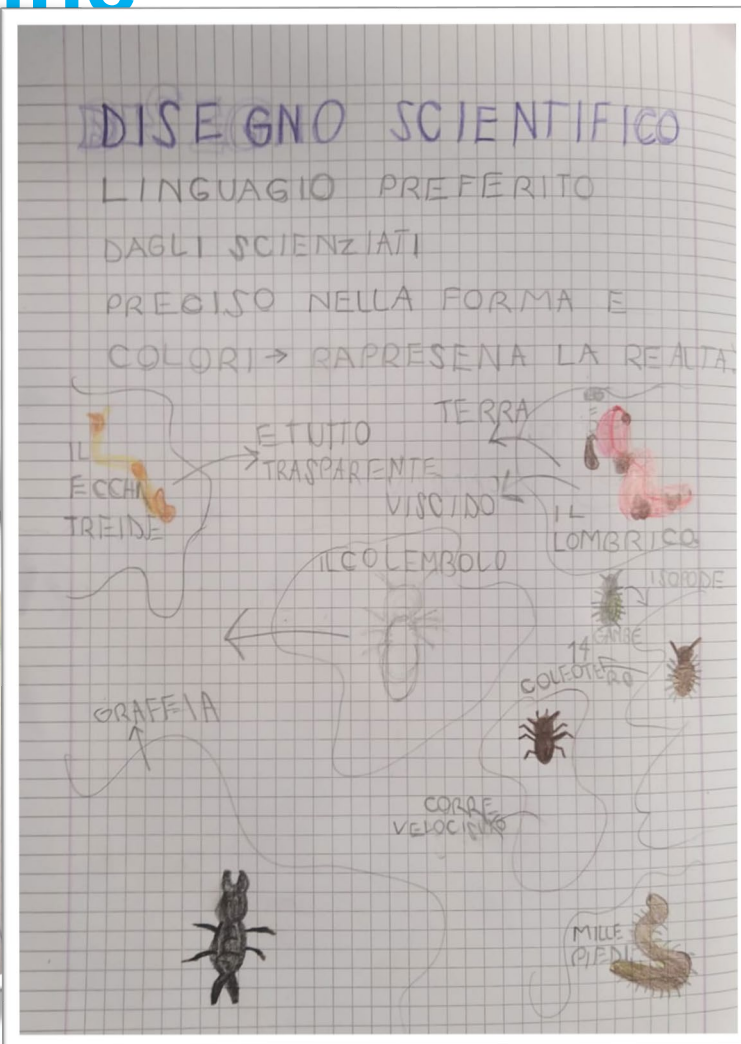 DISEGNO SCIENTIFICO
LINGUAGIO PREFERITO
DAGLI SCIENZIATI
PRECISO NELLA FORMA E
COLORI → RAPRESENA LA REALTA.
IL
ECCHI
TREIDE
E TUTTO
TRASPARENTE
TERRA
VISCIDO
IL
LOMBRICO
IL COLEMBOLO
ISOPODE
14
GAMBE
COLEOTE
RO
GRAFFIA
CORRE
MILLE
PIEDI